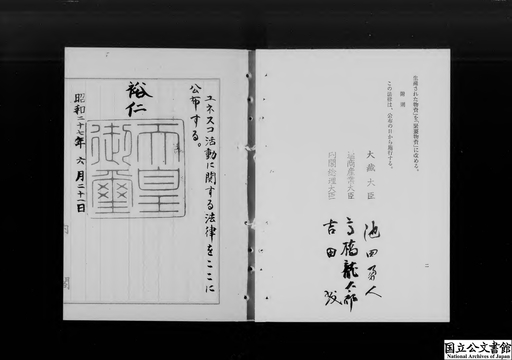 生産された物資」を「緊要物資」に改める。
附 則
この法律は、公布の日から施行する。
大藏大臣
池田勇人
通商産業大臣
高橋龍太郎
内閣総理大臣
吉田茂
二
ユネスコ活動に関する法律をここに
公布する。
裕仁
天皇
御璽
昭和二十七年六月二十一日
国立公文書館
National Archives of Japan